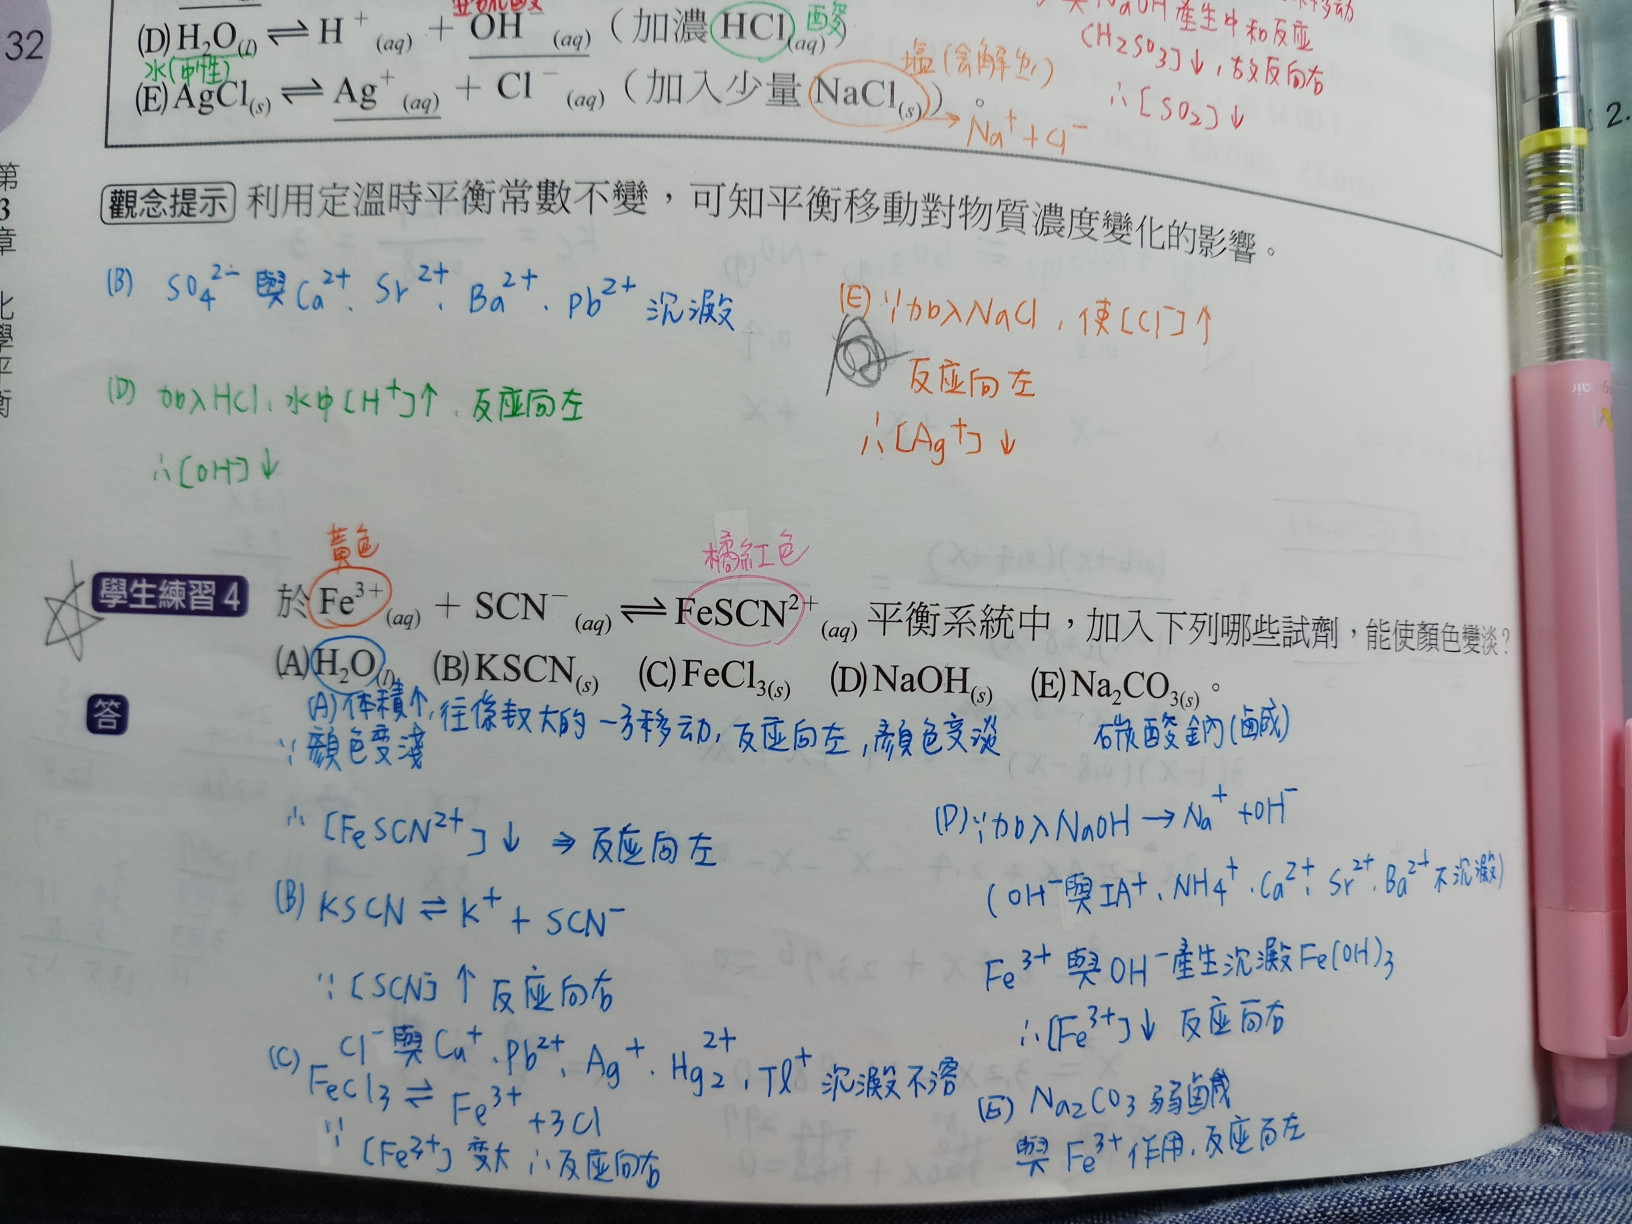 32
(D) H₂O(l) ⇌ H⁺(aq) + OH⁻(aq)（加濃HCl(aq)）
酸
水(中性)
(E) AgCl(s) ⇌ Ag⁺(aq) + Cl⁻(aq)（加入少量NaCl(s)）。
塩(会解离)
→ Na⁺ + Cl⁻
與NaOH產生中和反应
(H₂SO₃]↓, 故反向右
∴[SO₂]↓
2.
第3章 化學平衡
觀念提示 利用定溫時平衡常數不變，可知平衡移動對物質濃度變化的影響。
(B) SO₄²⁻ 與Ca²⁺、Sr²⁺、Ba²⁺、Pb²⁺ 沉澱
(D) 加入HCl, 水中[H⁺]↑, 反应向左
∴[OH⁻]↓
(E) ∵加入NaCl, 使[Cl⁻]↑
反应向左
∴[Ag⁺]↓
黃色
橘紅色
學生練習4 於Fe³⁺(aq) + SCN⁻(aq) ⇌ FeSCN²⁺(aq)平衡系統中，加入下列哪些試劑，能使顏色變淡？
(A) H₂O(l) (B) KSCN(s) (C) FeCl₃(s) (D) NaOH(s) (E) Na₂CO₃(s)。
答
(A)体積↑, 往係数大的一方移动, 反应向左, 顏色变淡
碳酸鈉(鹹)
∵顏色变淺
∴[FeSCN²⁺]↓ ⇒ 反应向左
(B) KSCN ⇌ K⁺ + SCN⁻
∵[SCN⁻]↑ 反应向右
(C) Cl⁻與Cu⁺、Pb²⁺、Ag⁺、Hg₂²⁺、Tl⁺沉澱不溶
FeCl₃ ⇌ Fe³⁺ + 3Cl
∵[Fe³⁺]变大 ∴反应向右
(D)∵加入NaOH → Na⁺ + OH⁻
(OH⁻與IA⁺、NH₄⁺、Ca²⁺、Sr²⁺、Ba²⁺不沉澱)
Fe³⁺與OH⁻產生沉澱Fe(OH)₃
∴[Fe³⁺]↓ 反应向右
(E) Na₂CO₃弱鹹
與Fe³⁺作用, 反应向左